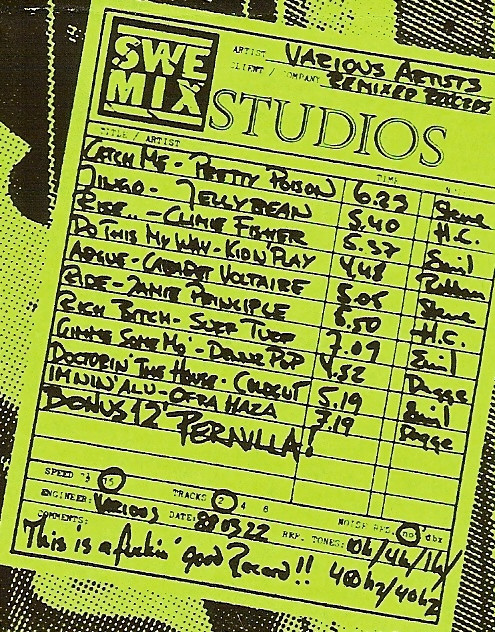 SWE
MIX
STUDIOS
ARTIST VARIOUS ARTISTS
CLIENT / COMPANY REMIXED RECORDS
TITLE / ARTIST TIME
CATCH ME - PRETTY POISON 6.29 Stene
JINGO - JELLYBEAN 5.40 H.C.
RISE.. - CLIMIE FISHER 5.37 Emil
DO THIS MY WAY - KID N PLAY 4.48 Robban
ARGUE - CABARET VOLTAIRE 5.05 Stene
RIDE - JAMIE PRINCIPLE 6.50 H.C.
RICH BITCH - SURF TURF 7.09 Emil
GIMME SOME MO' - DANNE POP 4.52 Dagge
DOCTORIN' THE HOUSE - COLDCUT 5.19 Emil
IM NIN' ALU - OFRA HAZA 7.19 Dagge
BONUS 12" PERNILLA!
SPEED 7½ 15 TRACKS 2 4 8 NOISE RED. no dbx
ENGINEER: VARIOUS DATE: 880322 REF. TONES: 10k/4k/1k/
COMMENTS: 400hz/40hz
This is a fuckin' good Record!!